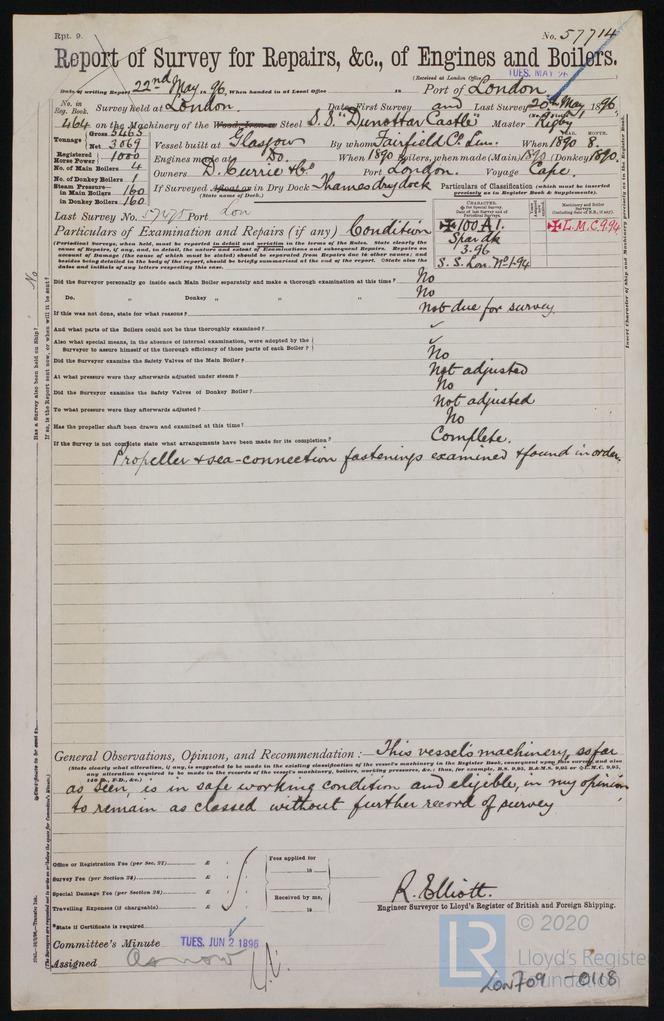 Rpt. 9. No. 57714
Report of Survey for Repairs, &c., of Engines and Boilers.
(Received at London Office TUES. MAY 26
Date of writing Report 22nd May 1896, When handed in at Local Office 18 Port of London
No. in Reg. Book. Survey held at London. Date, First Survey and Last Survey 20th May 1896
464 on the Machinery of the Wood, Iron or Steel S.S. "Dunottar Castle" Master Rigby
Tonnage Gross 5465 Net 3069 Vessel built at Glasgow By whom Fairfield Co. Lim. When 1890 8.
Registered Horse Power 1000 Engines made at Do. When 1890 Boilers, when made (Main) 1890 (Donkey) 1890
No. of Main Boilers 4 Owners D. Currie & Co. Port London. Voyage Cape.
No. of Donkey Boilers 1
Steam Pressure— in Main Boilers 160 If Surveyed Afloat or in Dry Dock Thames dry dock
in Donkey Boilers 160 (State name of Dock.)
Particulars of Classification (which must be inserted precisely as in Register Book & Supplements).
Last Survey No. Port Lon
CHARACTER. Machinery and Boiler Surveys
✠100A1. ✠L.M.C. 9.94
Spar dk
3.96
S.S. Lon. No1-94
Particulars of Examination and Repairs (if any) Condition
(Periodical Surveys, when held, must be reported in detail and seriatim in the terms of the Rules. State clearly the
cause of Repairs, if any, and, in detail, the nature and extent of Examinations and subsequent Repairs. Repairs on
account of Damage (the cause of which must be stated) should be separated from Repairs due to other causes; and
besides being detailed in the body of the report, should be briefly summarised at the end of the report. State also the
dates and initials of any letters respecting this case.
Did the Surveyor personally go inside each Main Boiler separately and make a thorough examination at this time? No
Do. " Donkey " " " No
If this was not done, state for what reasons? Not due for survey
And what parts of the Boilers could not be thus thoroughly examined? ✓
Also what special means, in the absence of internal examination, were adopted by the
Surveyor to assure himself of the thorough efficiency of those parts of each Boiler? ✓
Did the Surveyor examine the Safety Valves of the Main Boiler? No
At what pressure were they afterwards adjusted under steam? Not adjusted
Did the Surveyor examine the Safety Valves of Donkey Boiler? No
To what pressure were they afterwards adjusted? Not adjusted
Has the propeller shaft been drawn and examined at this time? No
If the Survey is not complete state what arrangements have been made for its completion? Complete.
Propeller & sea-connection fastenings examined & found in order.
General Observations, Opinion, and Recommendation:— This vessel's machinery, so far
(State clearly what alteration, if any, is suggested to be made in the existing classification of the vessel's machinery in the Register Book, consequent upon this survey and also
any alteration required to be made in the records of the vessel's machinery, boilers, working pressures, &c.
as seen, is in safe working condition and eligible, in my opinion
to remain as classed without further record of survey
Office or Registration Fee (per Sec. 27) £
Survey Fee (per Section 28) £
Special Damage Fee (per Section 28) £
Travelling Expenses (if chargeable) £
Fees applied for
18
Received by me,
18
R. Elliott.
Engineer Surveyor to Lloyd's Register of British and Foreign Shipping.
State if Certificate is required
Committee's Minute TUES. JUN 2 1896
Assigned As now
© 2020
LR Lloyd's Register Foundation
LON709-0118